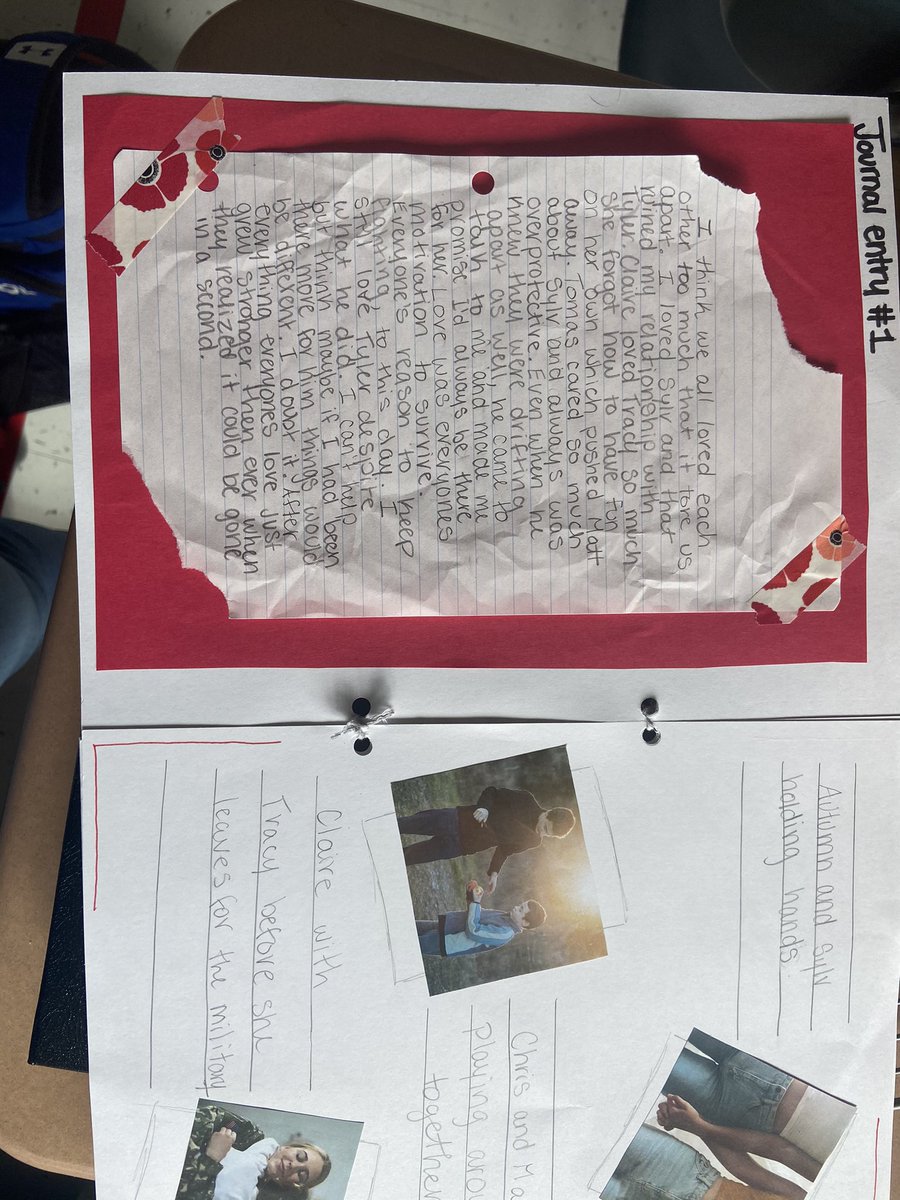 Journal entry #1
I think we all loved each
other too much that it tore us
apart. I loved Sylv and that
ruined my relationship with
Tyler. Claire loved Tracy so much
she forgot how to have fun
on her own which pushed Matt
away. Tomas cared so much
about Sylv and always was
overprotective. Even when he
knew they were drifting
apart as well, he came to
talk to me and made me
promise I'd always be there
for her. Love was everyones
motivation to survive.
Everyone's reason to keep
fighting. to this day I
still love Tyler despite
what he did. I can't help
but think maybe if I had been
there more for him things would
be different. I doubt it. After
everything everyones love just
grew stronger then ever when
they realized it could be gone
in a second.
Autumn and Sylv
holding hands.
Chris and Ma
playing arou
together
Claire with
Tracy before she
leaves for the military